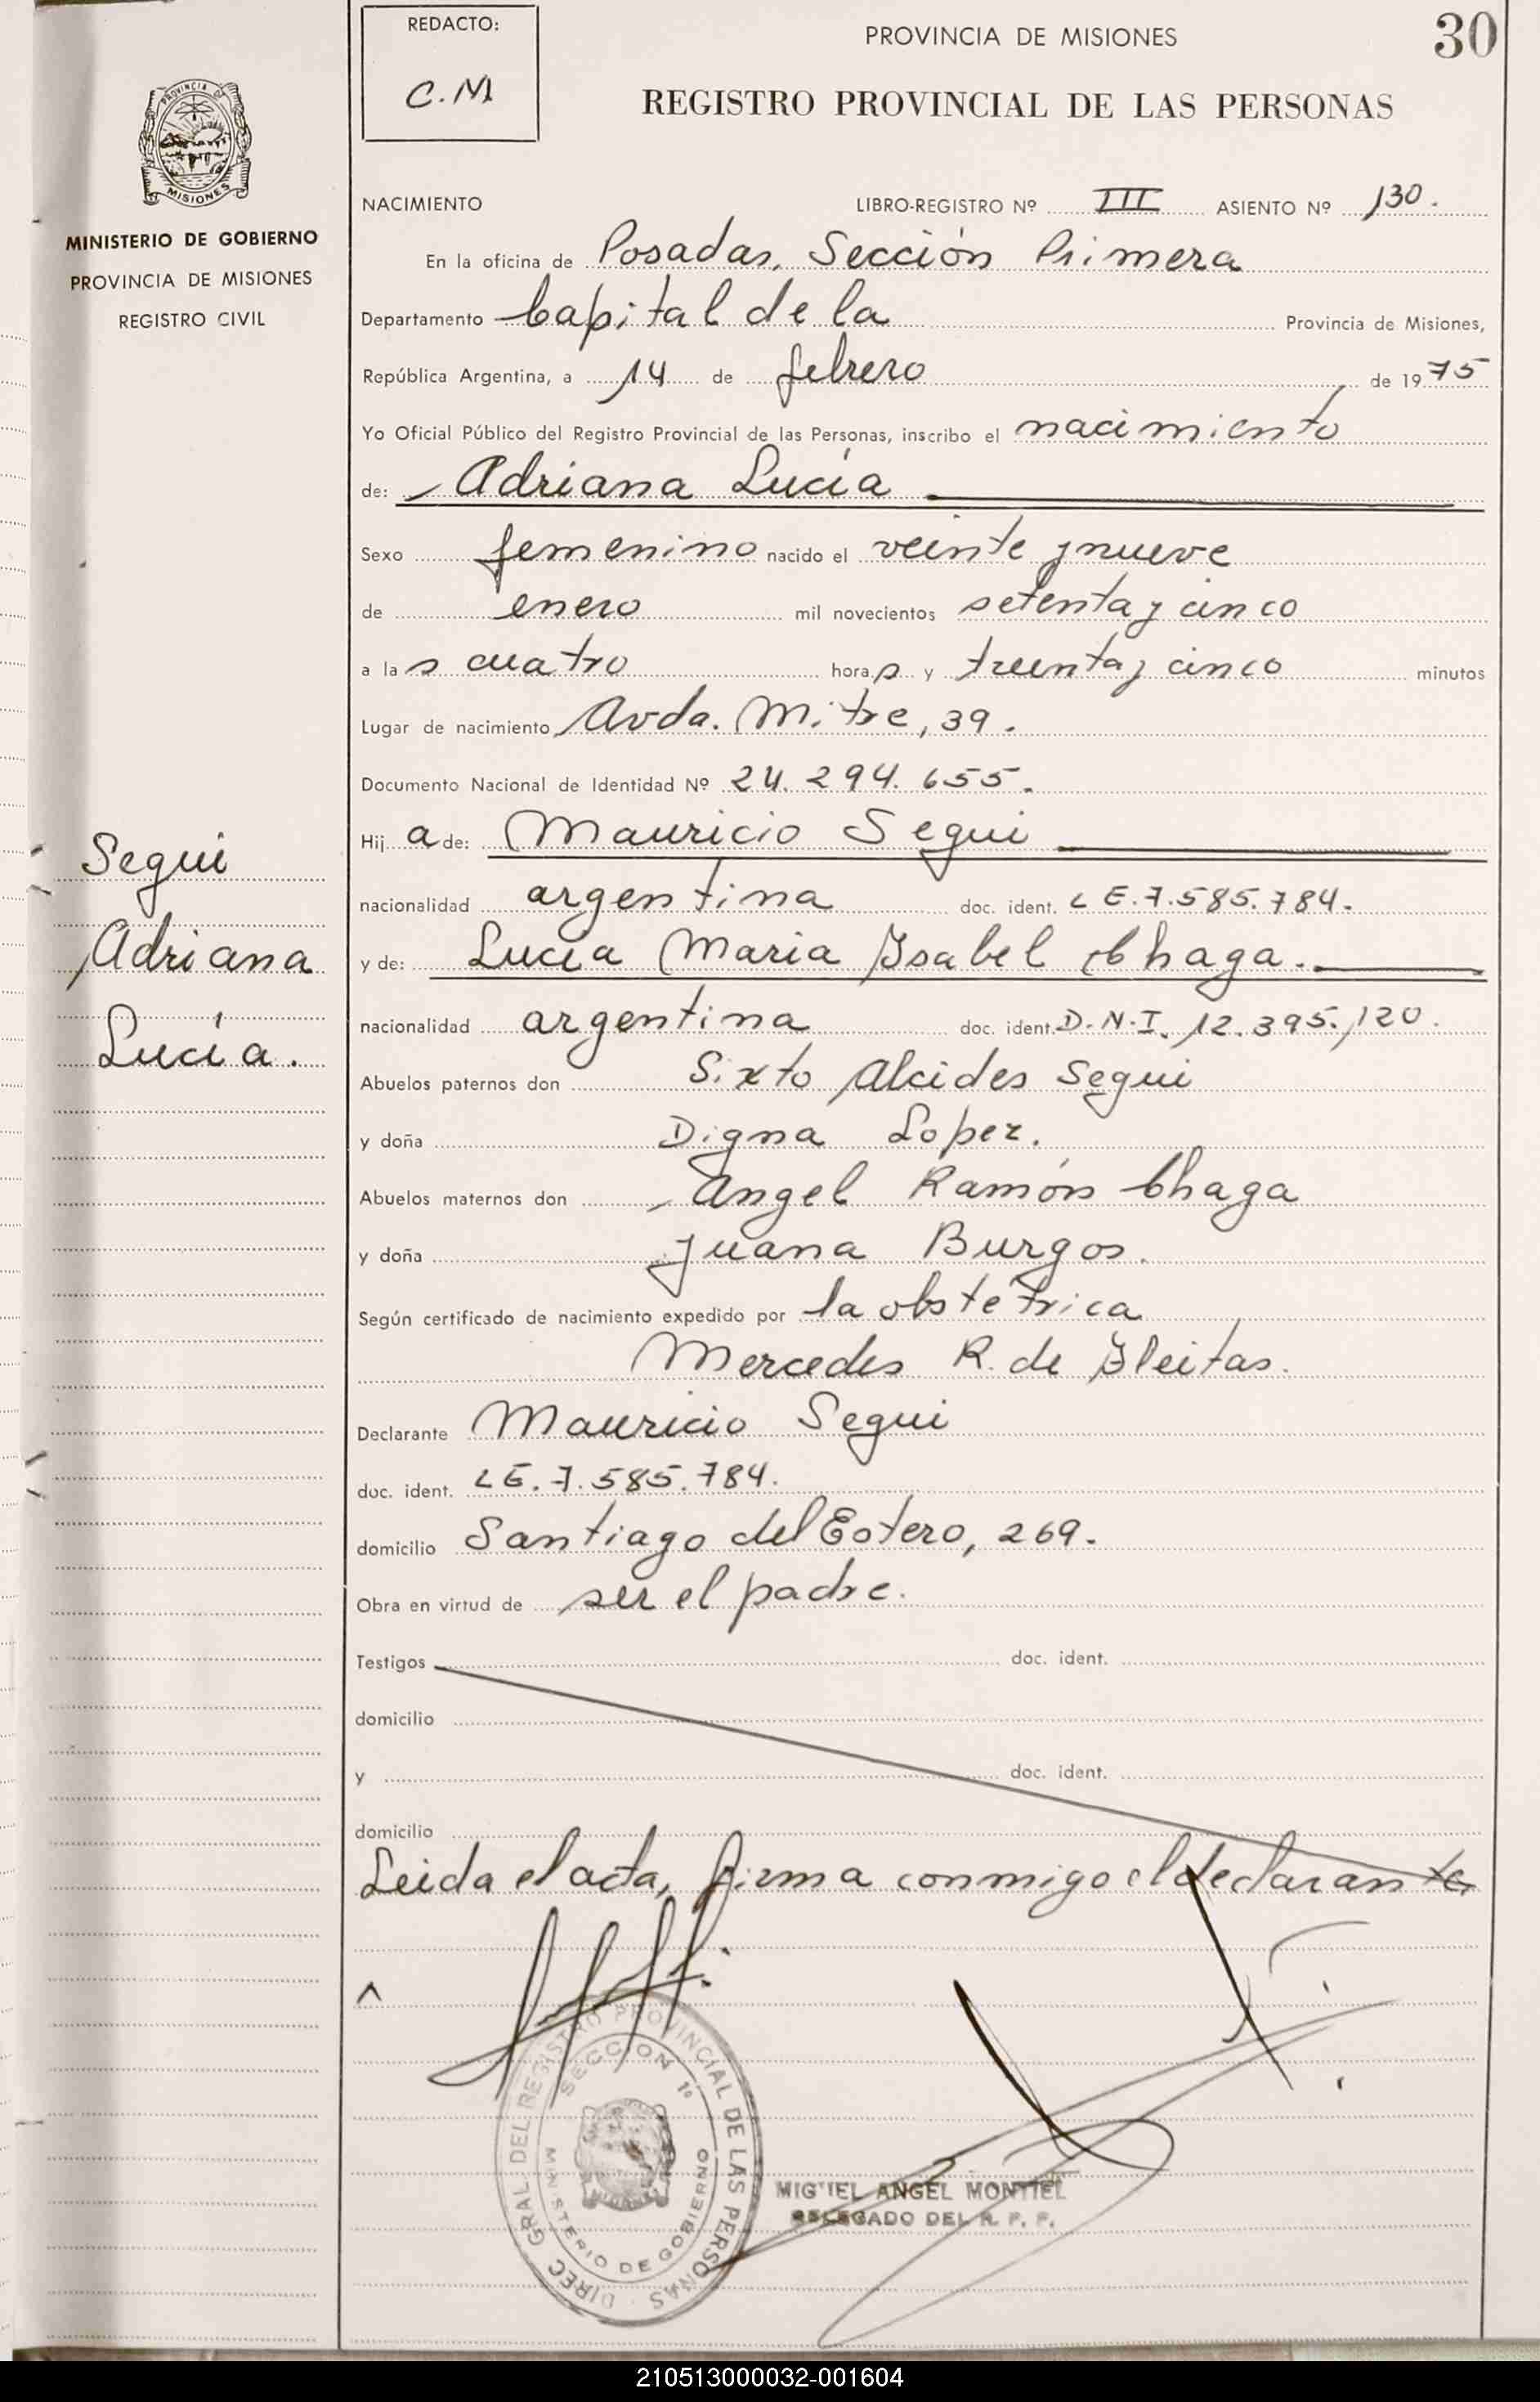 REDACTO:
C.M
PROVINCIA DE MISIONES
30
REGISTRO PROVINCIAL DE LAS PERSONAS
PROVINCIA DE
MISIONES
MINISTERIO DE GOBIERNO
PROVINCIA DE MISIONES
REGISTRO CIVIL
NACIMIENTO LIBRO-REGISTRO Nº III ASIENTO Nº 130.
En la oficina de Posadas, Sección Primera
Departamento Capital de la Provincia de Misiones,
República Argentina, a 14 de febrero de 1975
Yo Oficial Público del Registro Provincial de las Personas, inscribo el nacimiento
de: Adriana Lucía
Sexo femenino nacido el veinte y nueve
de enero mil novecientos setenta y cinco
a las cuatro horas y treinta y cinco minutos
Lugar de nacimiento Avda. Mitre, 39.
Documento Nacional de Identidad Nº 24.294.655.
Hija de: Mauricio Segui
nacionalidad argentina doc. ident. LE.7.585.784.
y de: Lucía Maria Ysabel Chaga.
nacionalidad argentina doc. ident. D.N.I. 12.395.120.
Abuelos paternos don Sixto Alcides Segui
y doña Digna Lopez.
Abuelos maternos don Angel Ramón Chaga
y doña Juana Burgos.
Según certificado de nacimiento expedido por la obstetrica
Mercedes R. de Gleitas.
Declarante Mauricio Segui
doc. ident. LE.7.585.784.
domicilio Santiago del Estero, 269.
Obra en virtud de ser el padre.
Testigos doc. ident.
domicilio
y doc. ident.
domicilio
Leida el acta, firma conmigo el declarante
Segui
Adriana
Lucía.
DIREC. GRAL DEL REGISTRO PROVINCIAL DE LAS PERSONAS
SECCION 1º
MINISTERIO DE GOBIERNO
MIGUEL ANGEL MONTIEL
DELEGADO DEL R. P. P.
210513000032-001604